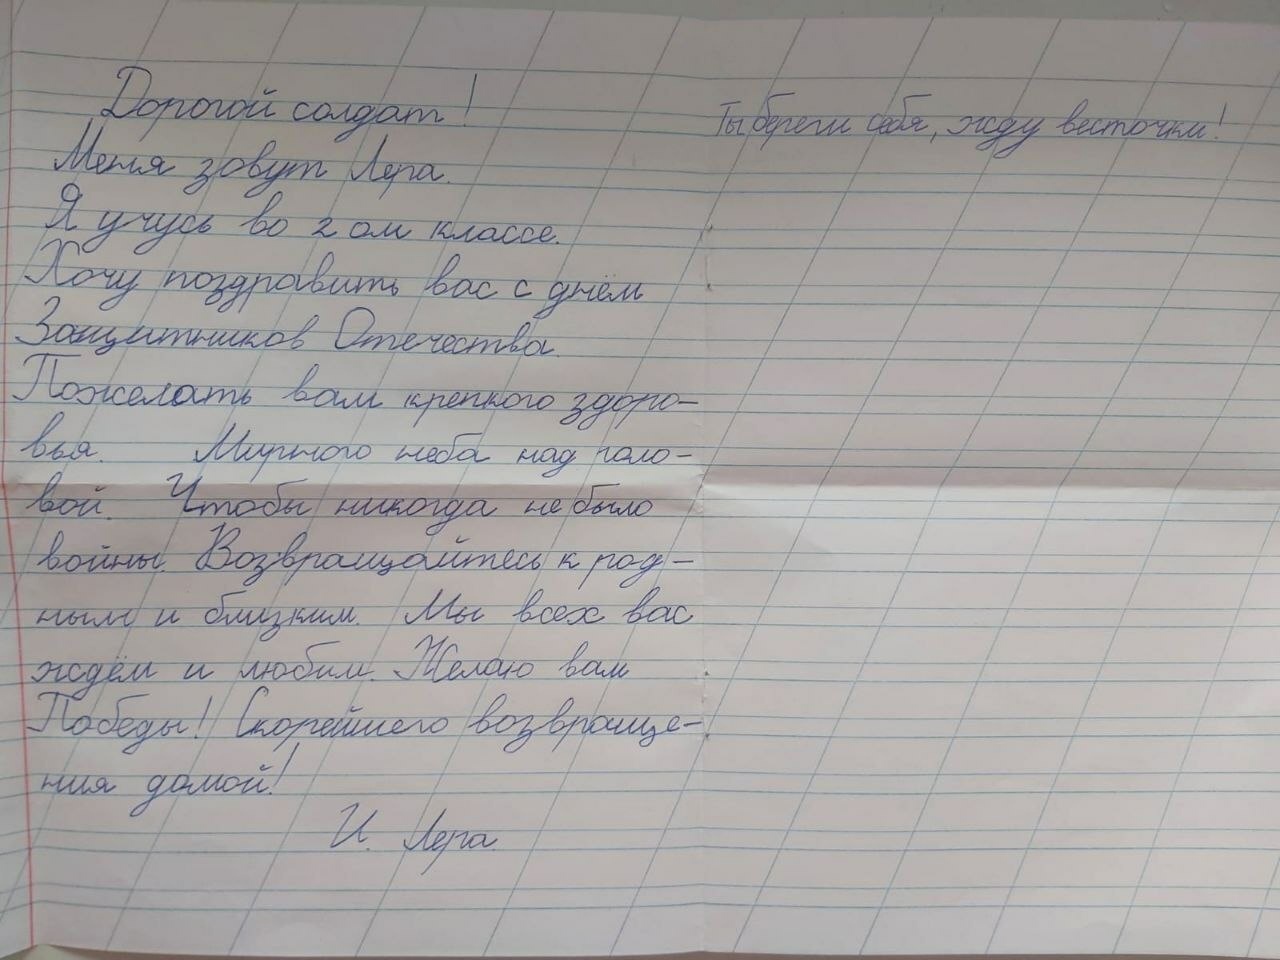 Дорогой солдат!
Меня зовут Лера.
Я учусь во 2 ом классе.
Хочу поздравить вас с днём
Защитников Отечества.
Пожелать вам крепкого здоро-
вья. Мирного неба над голо-
вой. Чтобы никогда не было
войны. Возвращайтесь к род-
ным и близким. Мы всех вас
ждём и любим. Желаю вам
Победы! Скорейшего возвраще-
ния домой!
И. Лера.
Ты береги себя, жду весточки!